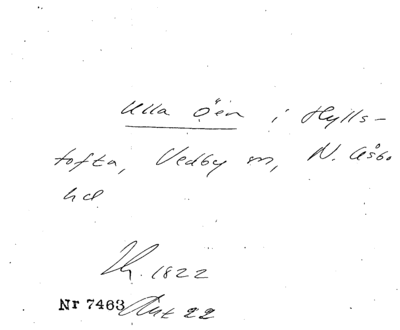 Ulla Öen i Hylls-
tofta, Vedby sn, N. Åsbo
hd
1822
Nr 7463 Akt 22